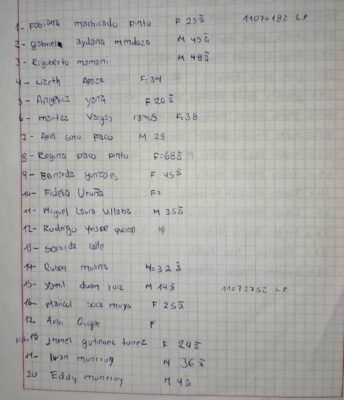 1- Fabiana machicado pinto F 23 a 11070192 LP
2- gabriela aydana mendoza M 45 a
3- Riguberto mamani M 48 a
4- Lizeth Apaza F:34
5- Angelica yana F 20 a
6- maritza Vargas F.38
7- Ana soto paco M 28
8- Regina paco pinto F:68 a
9- Bernarda gonzales F 45 a
10- Fidelia Uruña F=
11- Miguel Laura Ullaba M 35 a
12- Rodrigo yesse quispe M
13- soraida calle
14- Ruben molina M:32 a
15- Yamil duan ruiz M 14 a 11072752 LP
16- Marical soca moya F 25 a
17- Ana Quispe F
18 gutierrez F 24 a
19- Ivan monrroy M 36 a
20 Eddy monrroy M 4 a